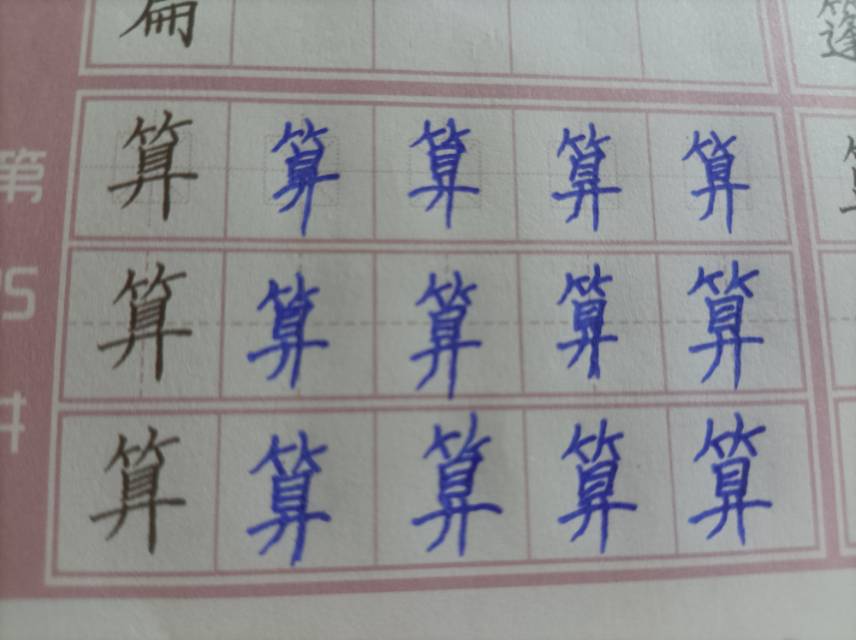 第
算 算 算 算 算
15
算 算 算 算 算
讲
算 算 算 算 算